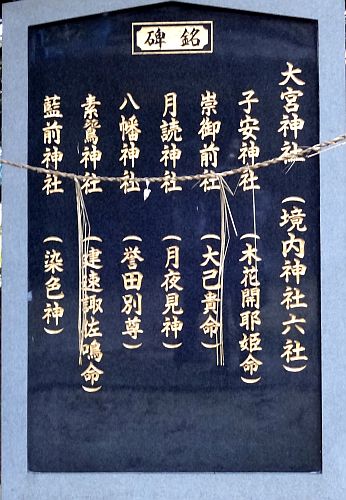 銘碑
大宮神社（境内神社六社）
子安神社（木花開耶姫命）
崇御前社（大己貴命）
月読神社（月夜見神）
八幡神社（誉田別尊）
素鵞神社（建速諏佐鳴命）
藍前神社（染色神）